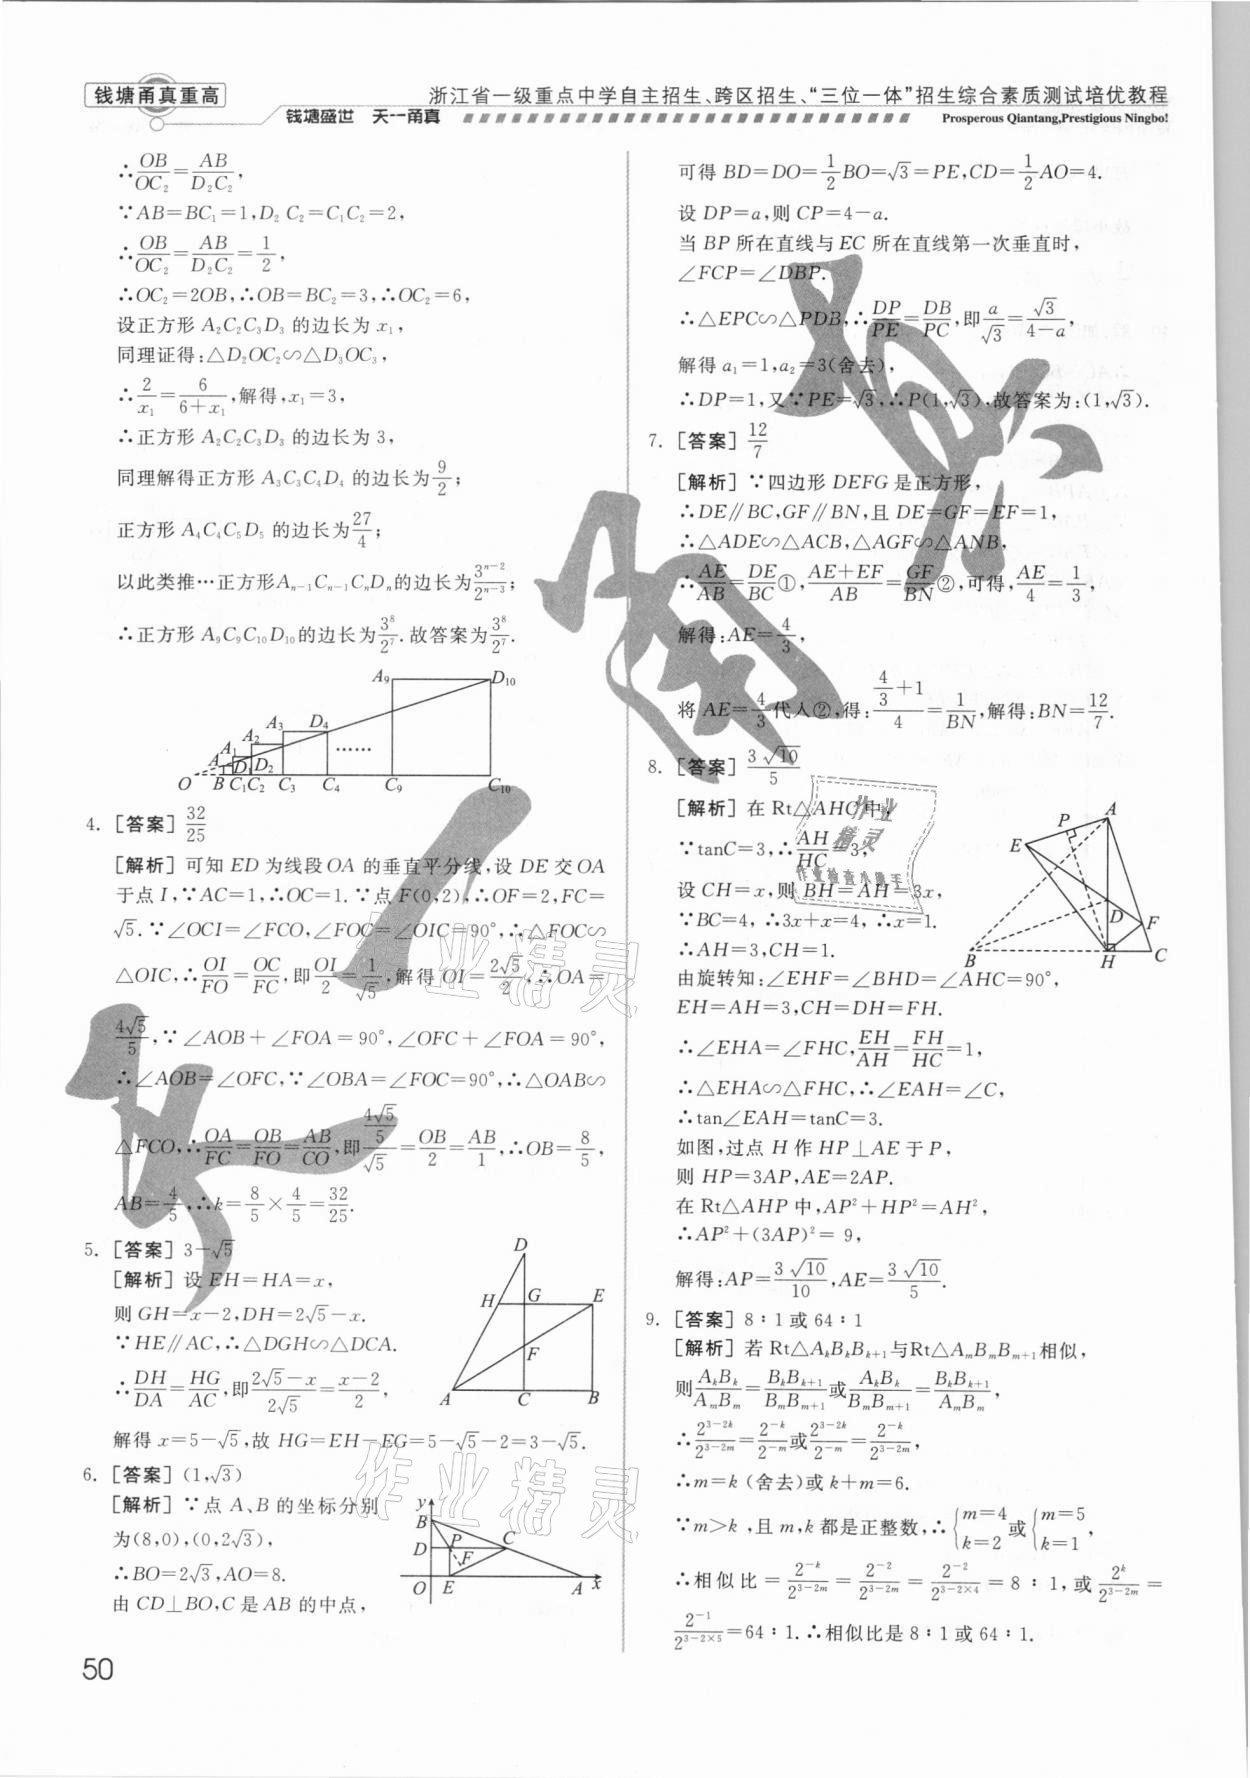 钱塘甬真重高
浙江省一级重点中学自主招生、跨区招生、“三位一体”招生综合素质测试培优教程
钱塘盛世 天一甬真
Prosperous Qiantang,Prestigious Ningbo!
∴OB/OC₂=AB/D₂C₂,
∵AB=BC₁=1,D₂C₂=C₁C₂=2,
∴OB/OC₂=AB/D₂C₂=1/2,
∴OC₂=2OB,∴OB=BC₂=3,∴OC₂=6,
设正方形 A₂C₂C₃D₃ 的边长为 x₁,
同理证得:△D₂OC₂∽△D₃OC₃,
∴2/x₁=6/(6+x₁),解得,x₁=3,
∴正方形 A₂C₂C₃D₃ 的边长为 3,
同理解得正方形 A₃C₃C₄D₄ 的边长为9/2;
正方形 A₄C₄C₅D₅ 的边长为27/4;
以此类推…正方形Aₙ₋₁Cₙ₋₁CₙDₙ的边长为3ⁿ⁻²/2ⁿ⁻³;
∴正方形 A₉C₉C₁₀D₁₀的边长为3⁸/2⁷.故答案为3⁸/2⁷.
A₉ D₁₀
A A₁ A₂ A₃ D₄ ……
D₁ D₂
O B C₁ C₂ C₃ C₄ C₉ C₁₀
4. [答案]32/25
[解析] 可知 ED 为线段 OA 的垂直平分线,设 DE 交 OA
于点 I,∵AC=1,∴OC=1.∵点 F(0,2),∴OF=2,FC=
√5.∵∠OCI=∠FCO,∠FOC=∠OIC=90°,∴△FOC∽
△OIC,∴OI/FO=OC/FC,即OI/2=1/√5,解得 OI=2√5/5,∴OA=
4√5/5,∵∠AOB+∠FOA=90°,∠OFC+∠FOA=90°,
∴∠AOB=∠OFC,∵∠OBA=∠FOC=90°,∴△OAB∽
△FCO,∴OA/FC=OB/FO=AB/CO,即(4√5/5)/√5=OB/2=AB/1,∴OB=8/5,
AB=4/5,∴k=8/5×4/5=32/25.
5. [答案] 3−√5
[解析] 设 EH=HA=x,
则 GH=x−2,DH=2√5−x.
∵HE∥AC,∴△DGH∽△DCA.
∴DH/DA=HG/AC,即(2√5−x)/2√5=(x−2)/2,
解得 x=5−√5,故 HG=EH−EG=5−√5−2=3−√5.
D
H G E
F
A C B
6. [答案] (1,√3)
[解析] ∵点 A、B 的坐标分别
为(8,0),(0,2√3),
∴BO=2√3,AO=8.
由 CD⊥BO,C 是 AB 的中点,
y
B
D P C
F
O E A x
50
可得 BD=DO=1/2BO=√3=PE,CD=1/2AO=4.
设 DP=a,则 CP=4−a.
当 BP 所在直线与 EC 所在直线第一次垂直时,
∠FCP=∠DBP.
∴△EPC∽△PDB,∴DP/PE=DB/PC,即a/√3=√3/(4−a),
解得 a₁=1,a₂=3(舍去),
∴DP=1,又∵PE=√3,∴P(1,√3).故答案为:(1,√3).
7. [答案]12/7
[解析] ∵四边形 DEFG 是正方形,
∴DE∥BC,GF∥BN,且 DE=GF=EF=1,
∴△ADE∽△ACB,△AGF∽△ANB,
∴AE/AB=DE/BC①,(AE+EF)/AB=GF/BN②,可得,AE/4=1/3,
解得:AE=4/3,
将 AE=4/3代入②,得:(4/3+1)/4=1/BN,解得:BN=12/7.
8. [答案]3√10/5
[解析] 在 Rt△AHC 中,
∵tanC=3,∴AH/HC=3,
设 CH=x,则 BH=AH=3x,
∵BC=4,∴3x+x=4,∴x=1.
∴AH=3,CH=1.
由旋转知:∠EHF=∠BHD=∠AHC=90°,
EH=AH=3,CH=DH=FH.
∴∠EHA=∠FHC,EH/AH=FH/HC=1,
∴△EHA∽△FHC,∴∠EAH=∠C,
∴tan∠EAH=tanC=3.
如图,过点 H 作 HP⊥AE 于 P,
则 HP=3AP,AE=2AP.
在 Rt△AHP 中,AP²+HP²=AH²,
∴AP²+(3AP)²=9,
解得:AP=3√10/10,AE=3√10/5.
P A
E
D F
B H C
9. [答案] 8∶1或 64∶1
[解析] 若 Rt△AₖBₖBₖ₊₁与Rt△AₘBₘBₘ₊₁相似,
则AₖBₖ/AₘBₘ=BₖBₖ₊₁/BₘBₘ₊₁或AₖBₖ/BₘBₘ₊₁=BₖBₖ₊₁/AₘBₘ,
∴2^(3−2k)/2^(3−2m)=2^(−k)/2^(−m)或2^(3−2k)/2^(−m)=2^(−k)/2^(3−2m),
∴m=k (舍去)或 k+m=6.
∵m>k ,且 m,k 都是正整数,∴{m=4 k=2 或{m=5 k=1,
∴相似比=2^(−k)/2^(3−2m)=2^(−2)/2^(3−2m)=2^(−2)/2^(3−2×4)=8∶1,或2^k/2^(3−2m)=
2^(−1)/2^(3−2×5)=64∶1.∴相似比是 8∶1 或 64∶1.
作业精灵
作业精灵
作业
精灵
作业检查小助手